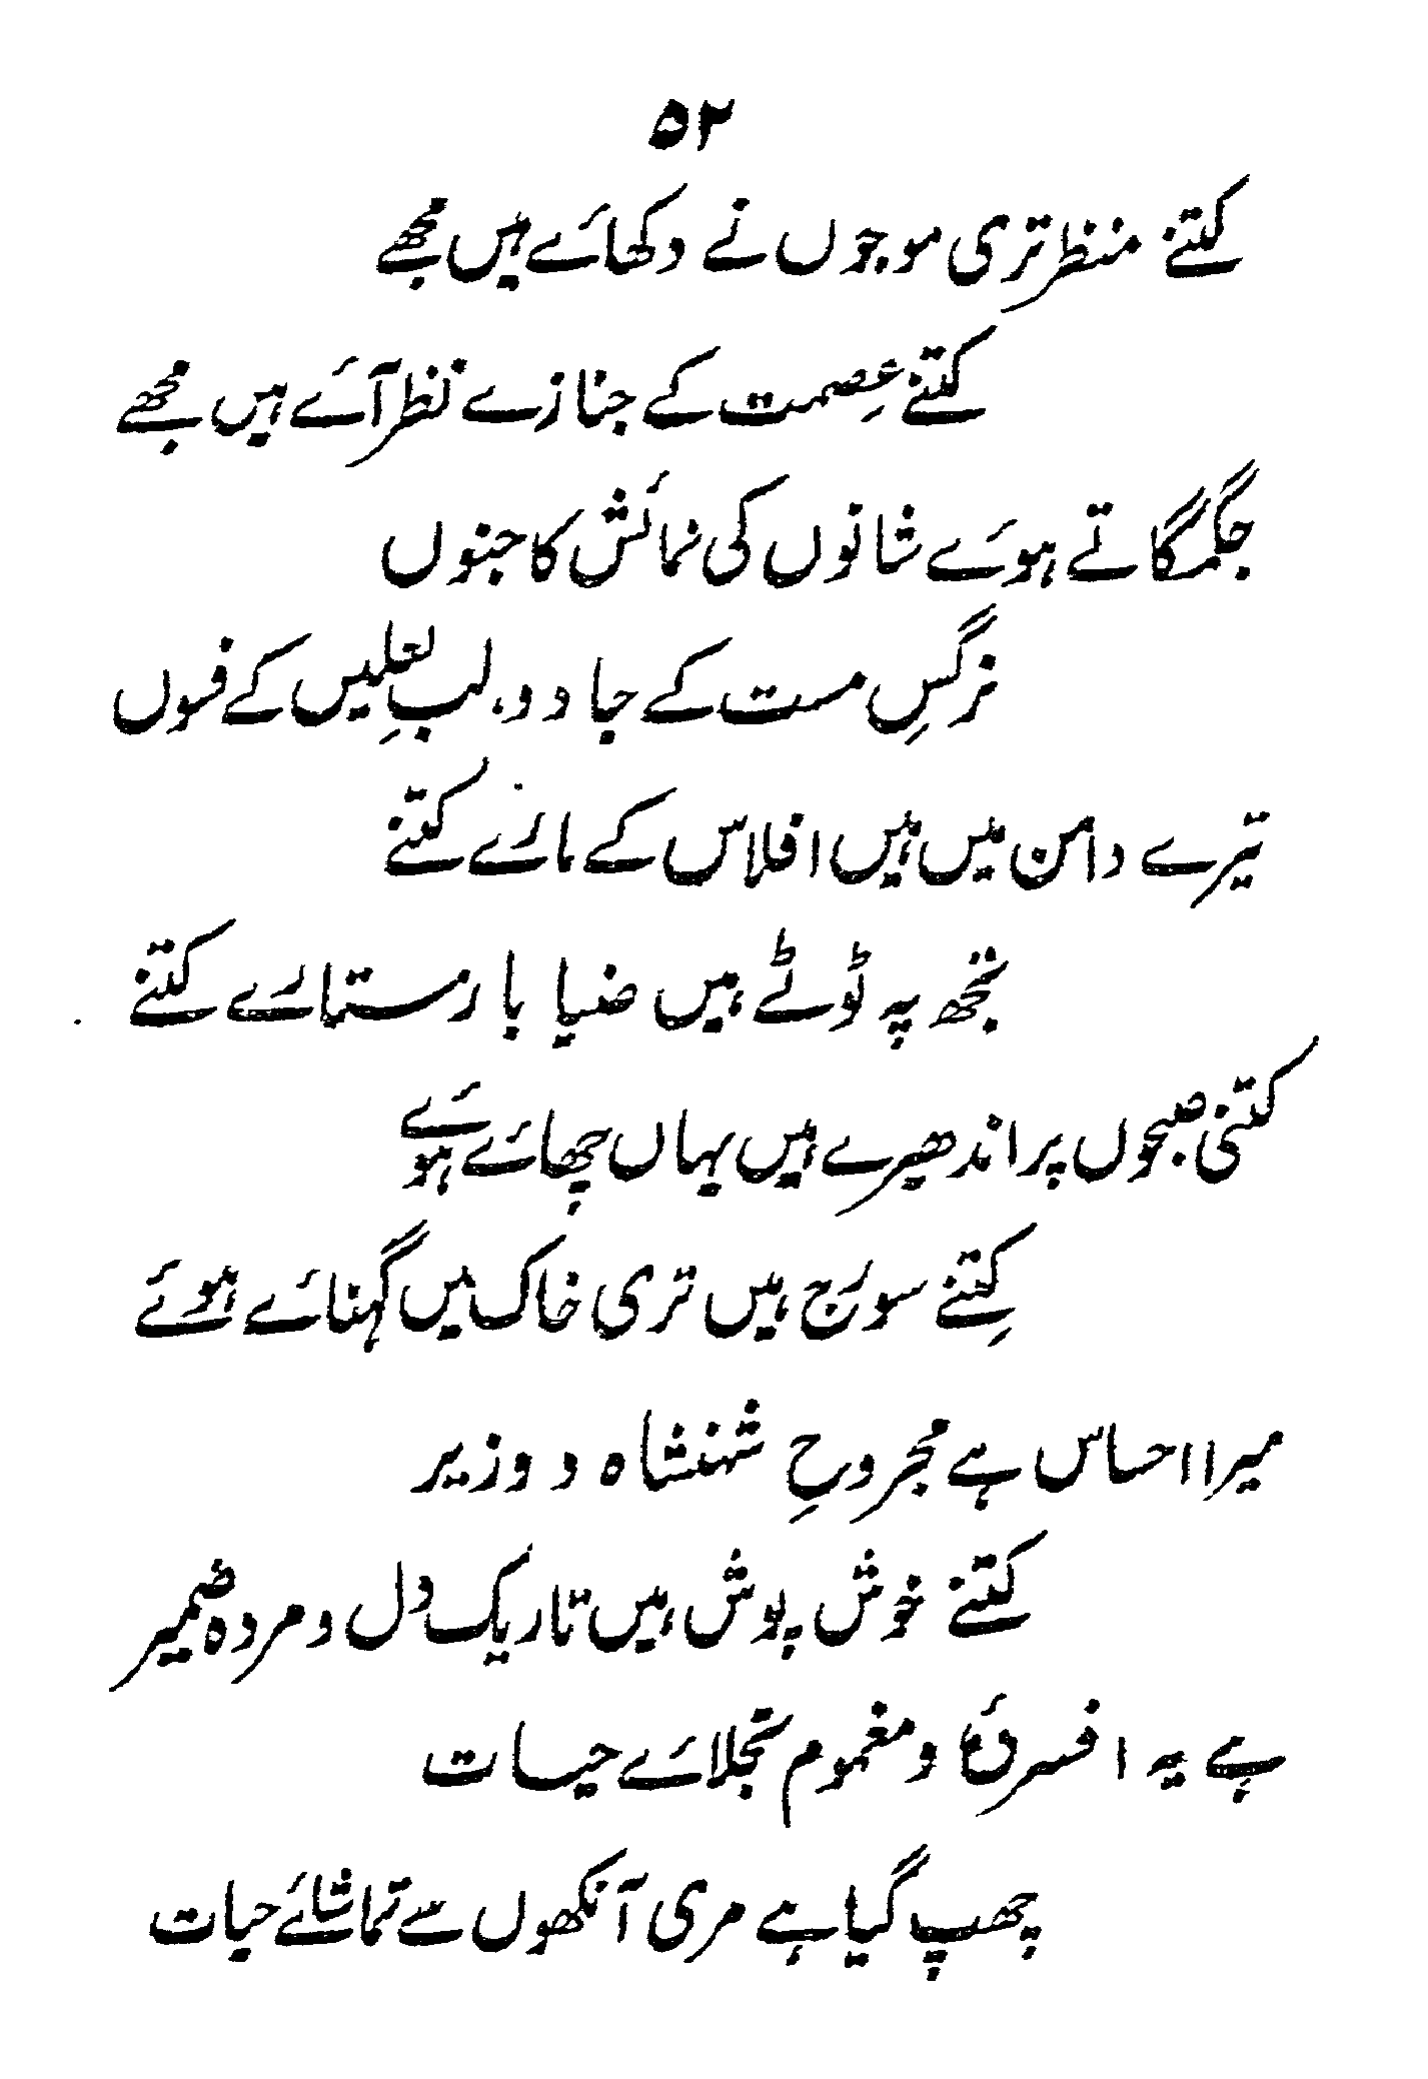 ۵۲
کتنے منظر تری موجوں نے دکھائے ہیں مجھے
کتنے عِصمت کے جنازے نظر آئے ہیں مجھے
جگمگاتے ہوئے شانوں کی نمائش کا جنوں
نرگسِ مست کے جادو، لبِ لعلیں کے فسوں
تیرے دامن میں ہیں افلاس کے مارے کتنے
تجھ پہ ٹوٹے ہیں ضیا بار ستارے کتنے
کتنی صبحوں پر اندھیرے ہیں یہاں چھائے ہوئے
کِتنے سورج ہیں تری خاک میں گہنائے ہوئے
میرا احساس ہے مجروحِ شہنشاہ و وزیر
کتنے خوش پوش ہیں تاریک دل و مردہ ضمیر
ہے یہ افسردۂ و مغموم تجلائے حیات
چھپ گیا ہے مری آنکھوں سے تماشائے حیات